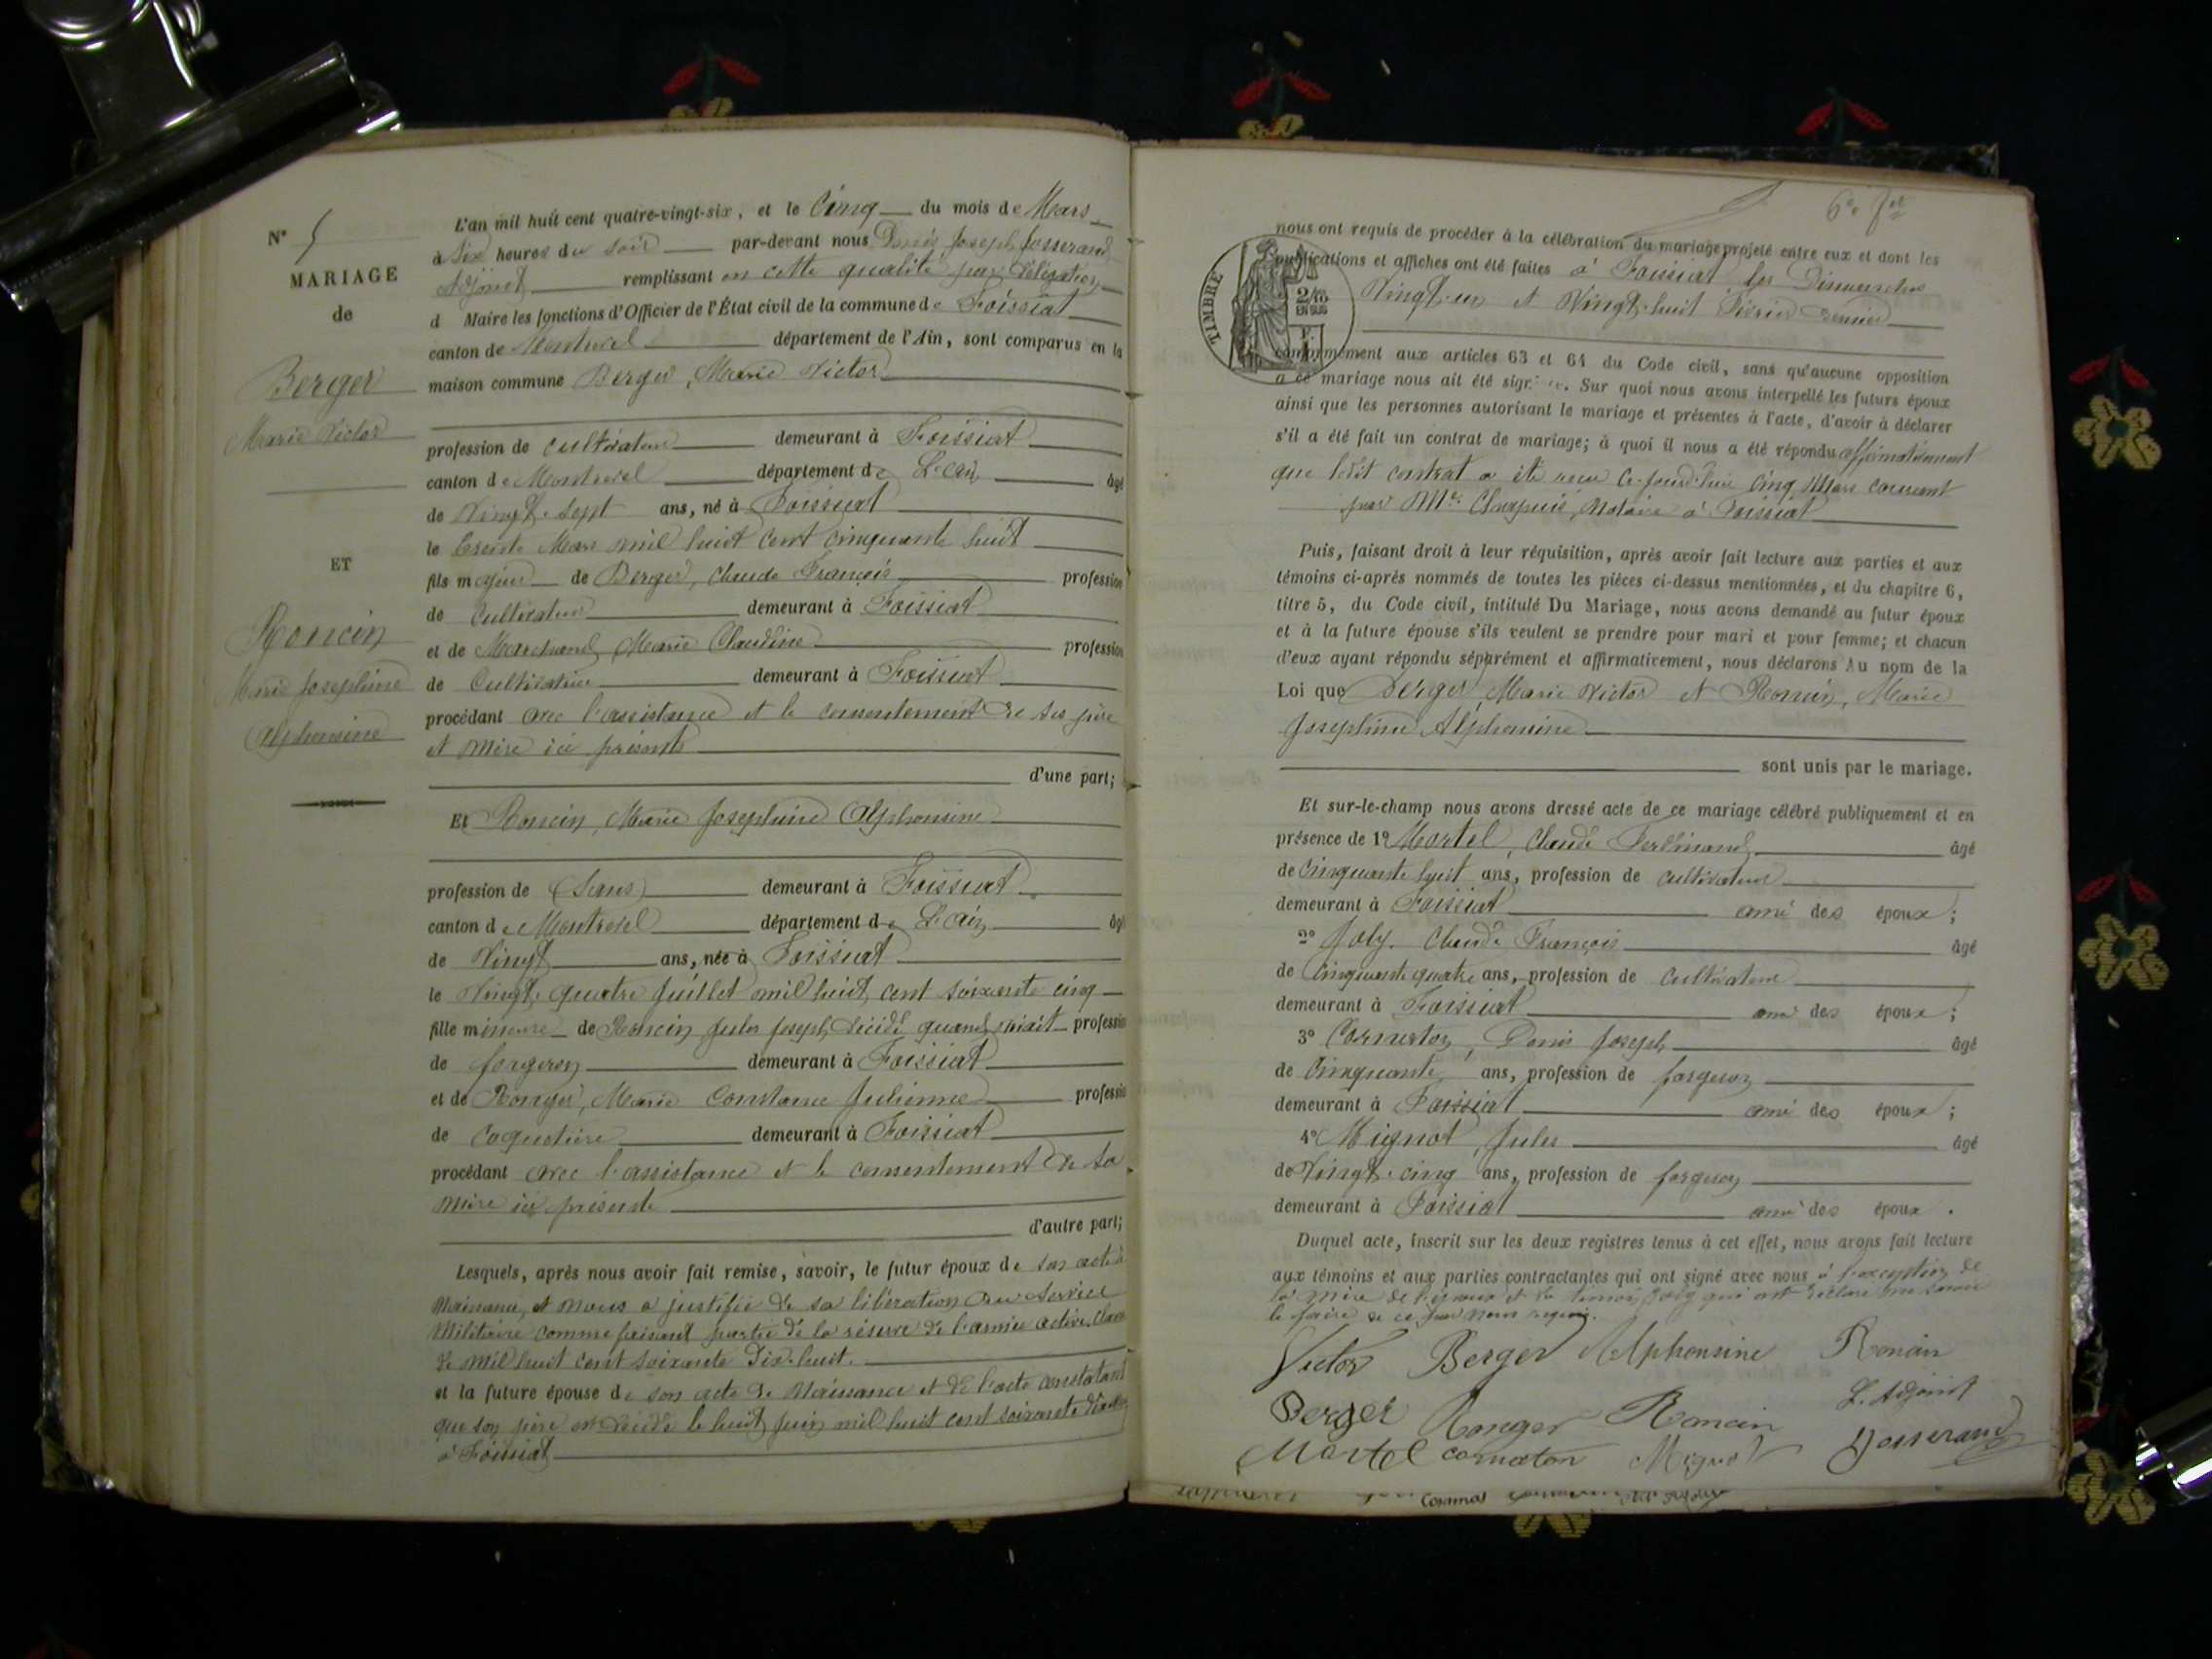 N° 5
MARIAGE
de
Berger
Marie Victor
ET
Roncin
Marie Josephine
Alphonsine
L'an mil huit cent quatre-vingt-six, et le Cinq du mois de Mars
à Six heures du soir par-devant nous Denis Joseph Josserand
Adjoint remplissant en cette qualité par délégation
d Maire les fonctions d'Officier de l'État civil de la commune de Foissiat
canton de Montrevel département de l'Ain, sont comparus en la
maison commune Berger, Marie Victor
profession de cultivateur demeurant à Foissiat
canton de Montrevel département de L'ain âgé
de Vingt-sept ans, né à Foissiat
le trente Mars mil huit cent cinquante huit
fils majeur de Berger, Claude François profession
de Cultivateur demeurant à Foissiat
et de Marchand, Marie Claudine profession
de Cultivatrice demeurant à Foissiat
procédant avec l'assistance et le consentement de ses père
et mère ici présents
d'une part;
Et Roncin, Marie Josephine Alphonsine
profession de (Sans) demeurant à Foissiat
canton de Montrevel département de L'ain âgé
de Vingt ans, née à Foissiat
le Vingt-quatre Juillet mil huit cent soixante cinq
fille mineure de Roncin Jules Joseph, décédé quand vivait profession
de forgeron demeurant à Foissiat
et de Ronger, Marie Constance Julienne profession
de Coquetière demeurant à Foissiat
procédant avec l'assistance et le consentement de sa
mère ici présente
d'autre part;
Lesquels, après nous avoir fait remise, savoir, le futur époux de son acte de
Naissance, et nous a justifié de sa libération du service
Militaire comme faisant partie de la réserve de l'armée active, Classe
de mil huit cent soixante dix-huit.
et la future épouse de son acte de Naissance et de l'acte constatant
que son père est décédé le huit Juin mil huit cent soixante
à Foissiat
nous ont requis de procéder à la célébration du mariage projeté entre eux et dont les
publications et affiches ont été faites à Foissiat les Dimanches
Vingt-un et Vingt-huit Février dernier
TIMBRE
2/10
EN SUS
conformément aux articles 63 et 64 du Code civil, sans qu'aucune opposition
à ce mariage nous ait été signifiée. Sur quoi nous avons interpellé les futurs époux
ainsi que les personnes autorisant le mariage et présentes à l'acte, d'avoir à déclarer
s'il a été fait un contrat de mariage; à quoi il nous a été répondu affirmativement
que ledit contrat a été reçu ce-jourd'hui cinq Mars courant
par Me Chapuis, Notaire à Foissiat
Puis, faisant droit à leur réquisition, après avoir fait lecture aux parties et aux
témoins ci-après nommés de toutes les pièces ci-dessus mentionnées, et du chapitre 6,
titre 5, du Code civil, intitulé Du Mariage, nous avons demandé au futur époux
et à la future épouse s'ils veulent se prendre pour mari et pour femme; et chacun
d'eux ayant répondu séparément et affirmativement, nous déclarons Au nom de la
Loi que Berger, Marie Victor et Roncin, Marie
Josephine Alphonsine
sont unis par le mariage.
Et sur-le-champ nous avons dressé acte de ce mariage célébré publiquement et en
présence de 1° Martel, Claude Ferdinand âgé
de Cinquante huit ans, profession de cultivateur
demeurant à Foissiat ami des époux;
2° Joly, Claude François âgé
de Cinquante quatre ans, profession de cultivateur
demeurant à Foissiat ami des époux;
3° Cornaton, Denis Joseph âgé
de Cinquante ans, profession de forgeron
demeurant à Foissiat ami des époux;
4° Mignot, Jules âgé
de Vingt-cinq ans, profession de forgeron
demeurant à Foissiat ami des époux.
Duquel acte, inscrit sur les deux registres tenus à cet effet, nous avons fait lecture
aux témoins et aux parties contractantes qui ont signé avec nous à l'exception de
la mère de l'époux et du témoin Joly qui ont déclaré ne savoir
le faire de ce par nous requis.
Victor Berger Alphonsine Roncin
Berger Ronger Roncin L. Adjoint
Martel cornaton Mignot Josserand